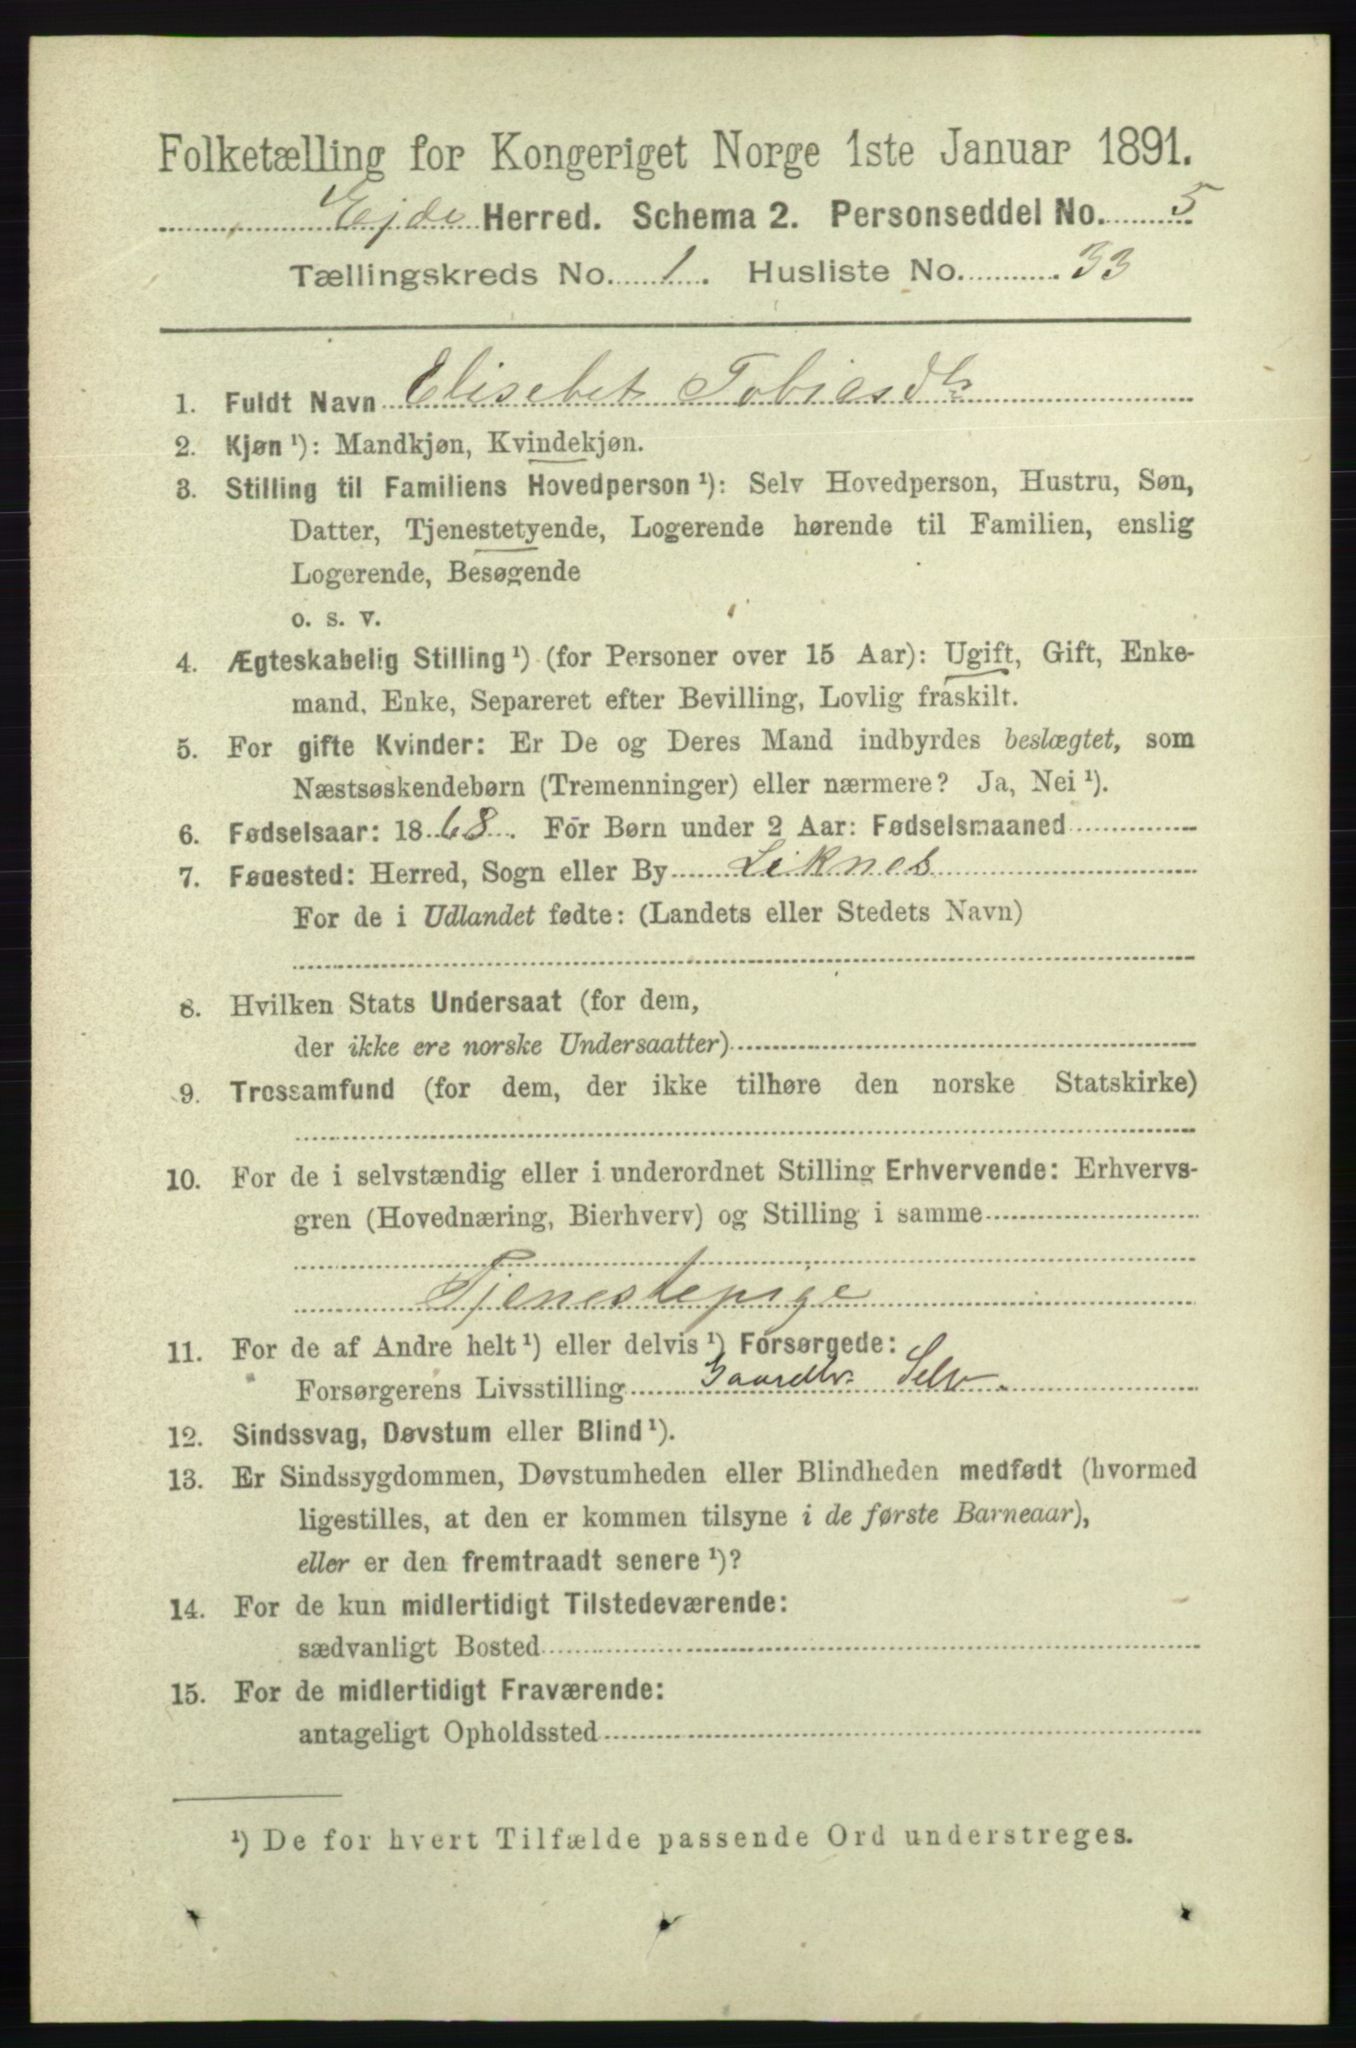 Folketælling for Kongeriget Norge 1ste Januar 1891.
Ejde Herred. Schema 2. Personseddel No. 5
Tællingskreds No. 1. Husliste No. 33
1. Fuldt Navn Elisebet Tobiasdtr
2. Kjøn ¹): Mandkjøn, Kvindekjøn.
3. Stilling til Familiens Hovedperson ¹): Selv Hovedperson, Hustru, Søn,
Datter, Tjenestetyende, Logerende hørende til Familien, enslig
Logerende, Besøgende
o. s. v.
4. Ægteskabelig Stilling ¹) (for Personer over 15 Aar): Ugift, Gift, Enke-
mand, Enke, Separeret efter Bevilling, Lovlig fraskilt.
5. For gifte Kvinder: Er De og Deres Mand indbyrdes beslægtet, som
Næstsøskendebørn (Tremenninger) eller nærmere? Ja, Nei ¹).
6. Fødselsaar: 1868. For Børn under 2 Aar: Fødselsmaaned
7. Fødested: Herred, Sogn eller By Liknes
For de i Udlandet fødte: (Landets eller Stedets Navn)
8. Hvilken Stats Undersaat (for dem,
der ikke ere norske Undersaatter)
9. Trossamfund (for dem, der ikke tilhøre den norske Statskirke)
10. For de i selvstændig eller i underordnet Stilling Erhvervende: Erhvervs-
gren (Hovednæring, Bierhverv) og Stilling i samme
Tjenestepige
11. For de af Andre helt ¹) eller delvis ¹) Forsørgede:
Forsørgerens Livsstilling Gaardbr. Selv.
12. Sindssvag, Døvstum eller Blind ¹).
13. Er Sindssygdommen, Døvstumheden eller Blindheden medfødt (hvormed
ligestilles, at den er kommen tilsyne i de første Barneaar),
eller er den fremtraadt senere ¹)?
14. For de kun midlertidigt Tilstedeværende:
sædvanligt Bosted
15. For de midlertidigt Fraværende:
antageligt Opholdssted
¹) De for hvert Tilfælde passende Ord understreges.